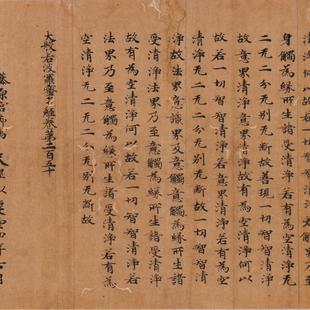 身觸為緣所生諸受清淨若有為空清淨无
二无二分无別无斷故善現一切智智清淨
故意界清淨意界清淨故有為空清淨何以
故若一切智智清淨若意界清淨若有為空
清淨无二无二分无別无斷故一切智智清
淨故法界意識界及意觸意觸為緣所生諸
受清淨法界乃至意觸為緣所生諸受清淨
故有為空清淨何以故若一切智智清淨若
法界乃至意觸為緣所生諸受清淨若有為
空清淨无二无二分无別无斷故
大般若波羅蜜多經卷第二百五十